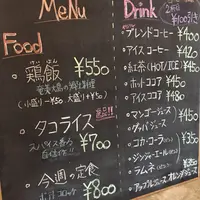 Menu
Food
・鶏飯 ¥550
奄美大島の郷土料理
(小盛り-¥50 大盛り+¥50)
・タコライス
スパイス香る
¥700
・今週の定食
¥800
Drink
・ブレンドコーヒー ¥400
・アイスコーヒー ¥420
・紅茶(HOT/ICE) ¥450
・ホットココア ¥450
・アイスココア ¥480
・マンゴージュース ¥450
・グァバジュース
・コカ・コーラ
・ジンジャーエール
・ラムネ
・アップルジュース オレンジジュース